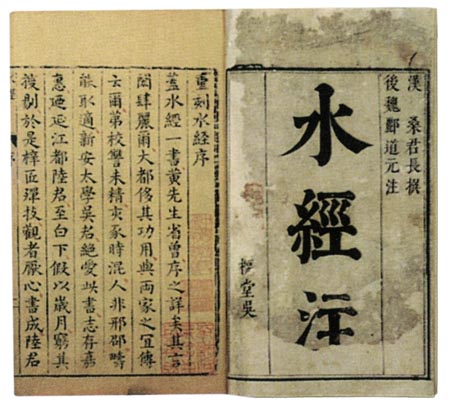 漢 桑君長撰
後魏酈道元注
水經注
堂吳
重刻水经序
蓋水经一書黃先生省曾序之詳矣其言
閎肆麗爾大都侈其功用與兩家之宜傳
云爾第校讐未精亥豕時混人非邢邵疇
能取適新安太學吳君絕愛此書志存嘉
惠迺延江都陸君至白下假以歲月窮其
搜剔於是梓匠殫技觀者厭心書成陸君